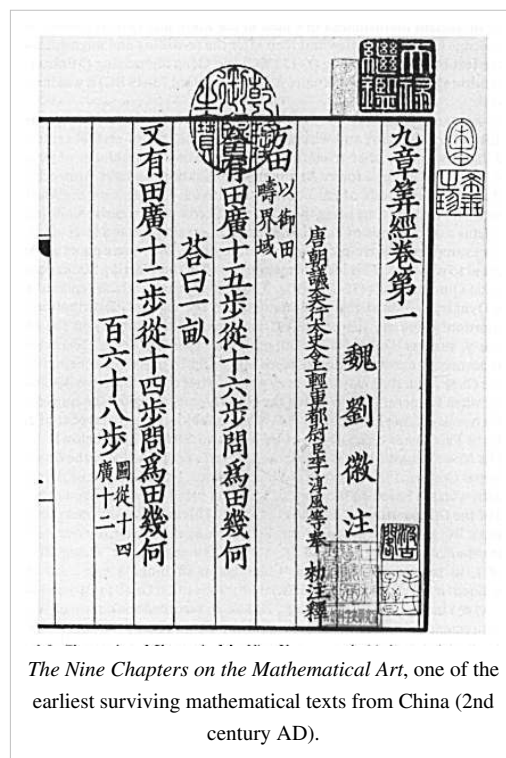 天祿
繼鑑
乾隆御覽之寶
九章筭經卷第一
魏劉徽注
唐朝議大夫行太史令上輕車都尉臣李淳風等奉 勑注釋
方田以御田
疇界域
今有田廣十五步從十六步問爲田幾何
荅曰一畝
又有田廣十二步從十四步問爲田幾何
百六十八步圖從十四
廣十二
The Nine Chapters on the Mathematical Art, one of the
earliest surviving mathematical texts from China (2nd
century AD).